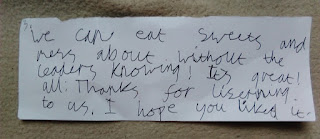 We can eat sweets and
mess about without the
leaders knowing! Its great!
all: Thanks for liserning
to us. I hope you liked it.